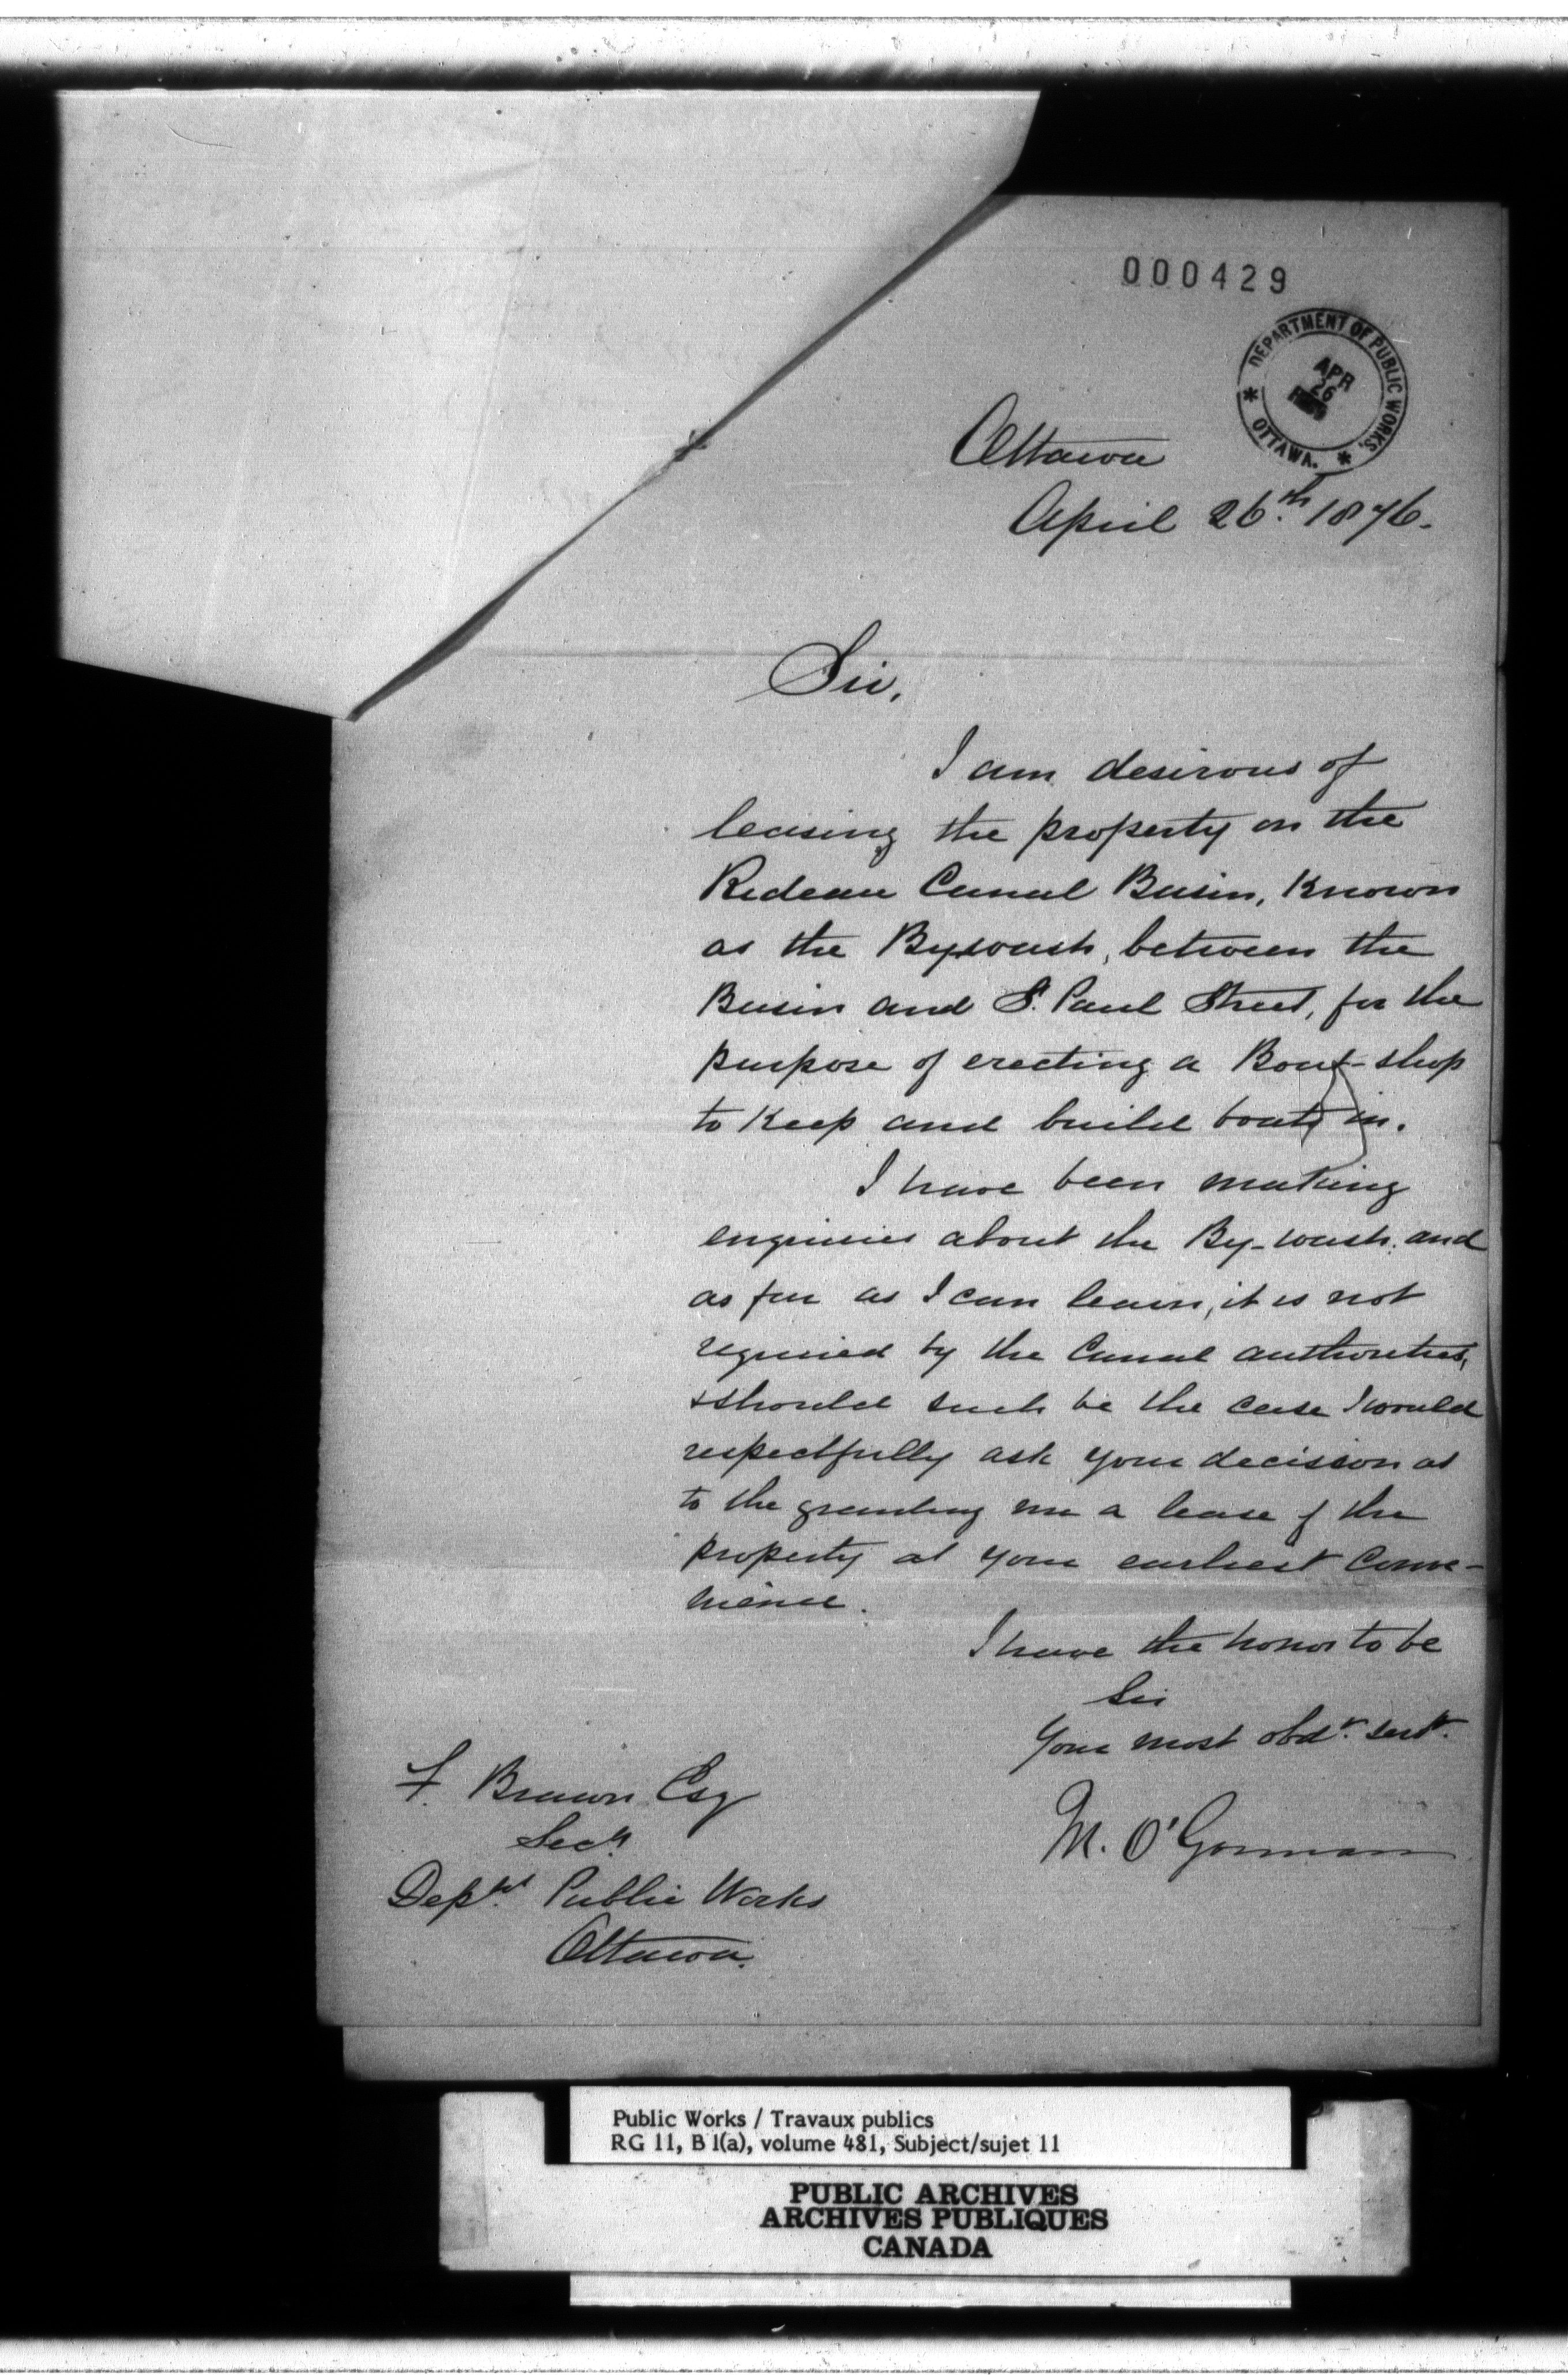 000429
DEPARTMENT OF PUBLIC WORKS,
APR
26
OTTAWA.
Ottawa
April 26.th 1876.
Sir,
I am desirous of
leasing the property on the
Rideau Canal Basin, Known
as the By-wash, between the
Basin and S. Paul Street, for the
purpose of erecting a Boat-shop
to Keep and build boats in.
I have been making
enquiries about the By-wash, and
as far as I can learn, it is not
required by the Canal authorities,
& should such be the case I would
respectfully ask your decission as
to the granting me a lease of the
property at your earliest Conve-
nience.
I have the honor to be
Sir
Your most obdt. servt.
M. O'Gorman
F. Braun Esq
Secy
Deptt. Public Works
Ottawa.
Public Works / Travaux publics
RG 11, B 1(a), volume 481, Subject/sujet 11
PUBLIC ARCHIVES
ARCHIVES PUBLIQUES
CANADA